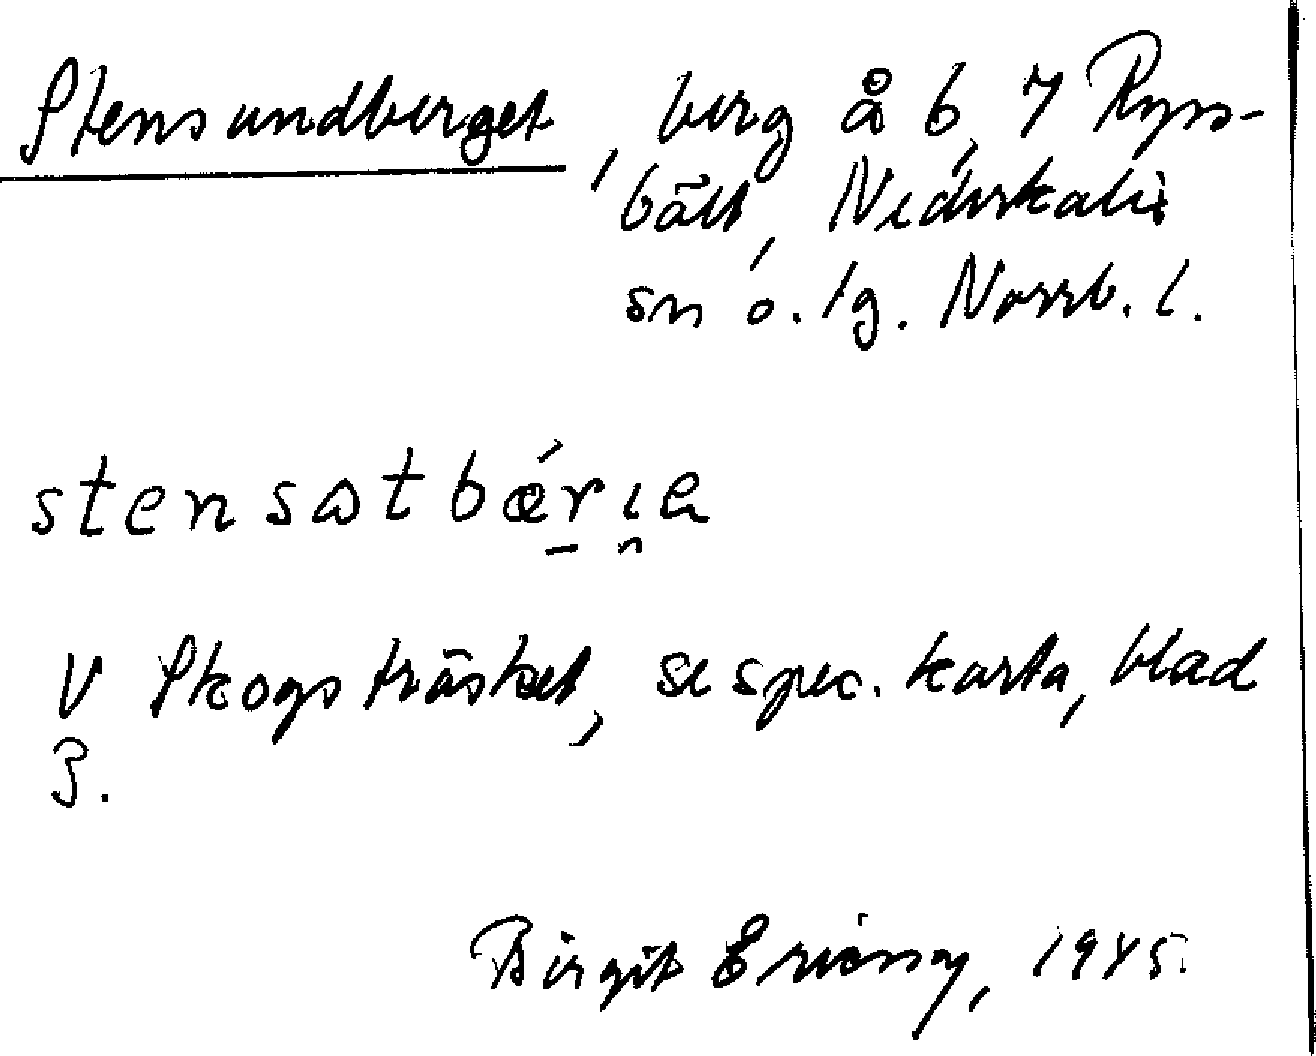 Stensundberget, berg å 6, 7 Ryss-
bält, Nederkalix
sn o. lg. Norrb. l.
stensatbærıe
V Skogsträsket, se spec. karta, blad
3.
Birgit Ericson, 1945.